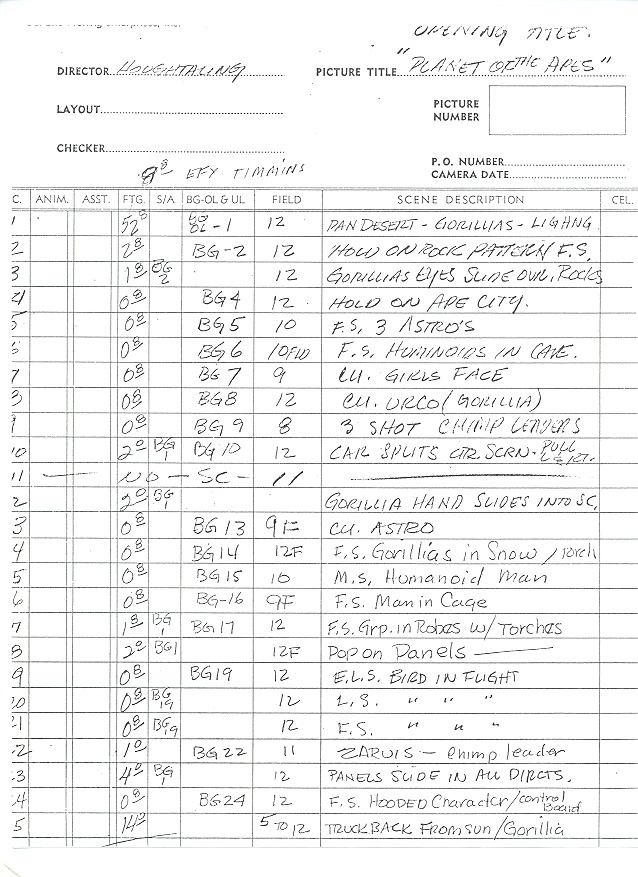 OPENING TITLE.
DIRECTOR HOUGHTALING PICTURE TITLE "PLANET OF THE APES"
LAYOUT
PICTURE NUMBER
CHECKER
P.O. NUMBER
CAMERA DATE
98 EFY TIMMINS
C. ANIM. ASST. FTG. S/A BG-OL & UL FIELD SCENE DESCRIPTION CEL.
1 52⁸ OL-1 12 PAN DESERT - GORILLIAS - LIGHNG
2 2⁸ BG-2 12 HOLD ON ROCK PATTERN F.S.
3 1⁸ BG 2 12 GORILLIAS EYES SLIDE OVR. ROCKS
4 0⁸ BG4 12 HOLD ON APE CITY.
5 0⁸ BG5 10 F.S. 3 ASTRO'S
6 0⁸ BG6 10FLD F.S. HUMINOIDS IN CAVE.
7 0⁸ BG7 9 CU. GIRLS FACE
8 0⁸ BG8 12 CU. URCO (GORILLIA)
9 0⁸ BG9 8 3 SHOT CHIMP LEADERS
10 2⁰ BG 1 BG10 12 CAR SPLITS CTR. SCRN. PULL
11 NO - SC - 11
2 2⁰ BG 1 GORILLIA HAND SLIDES INTO SC.
3 0⁸ BG13 9F CU. ASTRO
4 0⁸ BG14 12F F.S. Gorillias in Snow / Torch
5 0⁸ BG15 10 M.S. Humanoid Man
6 0⁸ BG-16 9F F.S. Man in Cage
7 1⁸ BG 1 BG17 12 F.S. Grp. in Robes w/ Torches
8 2⁰ BG1 12F Pop on Panels
9 0⁸ BG19 12 E.L.S. BIRD IN FLIGHT
20 0⁸ BG 19 12 L.S. " " "
21 0⁸ BG 19 12 F.S. " " "
2 1⁰ BG22 11 ZARVIS - chimp leader
3 4⁰ BG 1 12 PANELS SLIDE IN ALL DIRCTS.
4 0⁸ BG24 12 F.S. HOODED Character/control Board
5 14⁰ 5 TO 12 TRUCK BACK FROM SUN / Gorillia